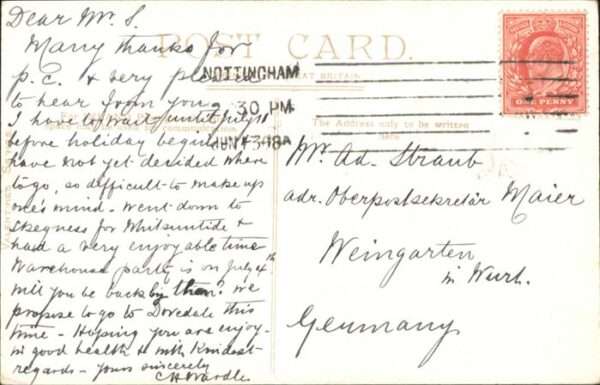 POST CARD.
GREAT BRITAIN.
NOTTINGHAM
30 PM
JUN
ONE PENNY
The Address only to be written
here
Dear Mr. S.
Many thanks for
p.c. & very pleased
to hear from you
I have to wait until July 11
before holiday begins
have not yet decided where
to go, so difficult to make up
one's mind - went down to
Skegness for Whitsuntide &
had a very enjoyable time
Warehouse party is on July 4th
will you be back by then? we
propose to go to Dovedale this
time - Hoping you are enjoy-
in good health & with Kindest
regards - yours sincerely
C H Wardle
Mr. Ad. Straub
adr. Oberpostsekretär Maier
Weingarten
in Wurt.
Germany